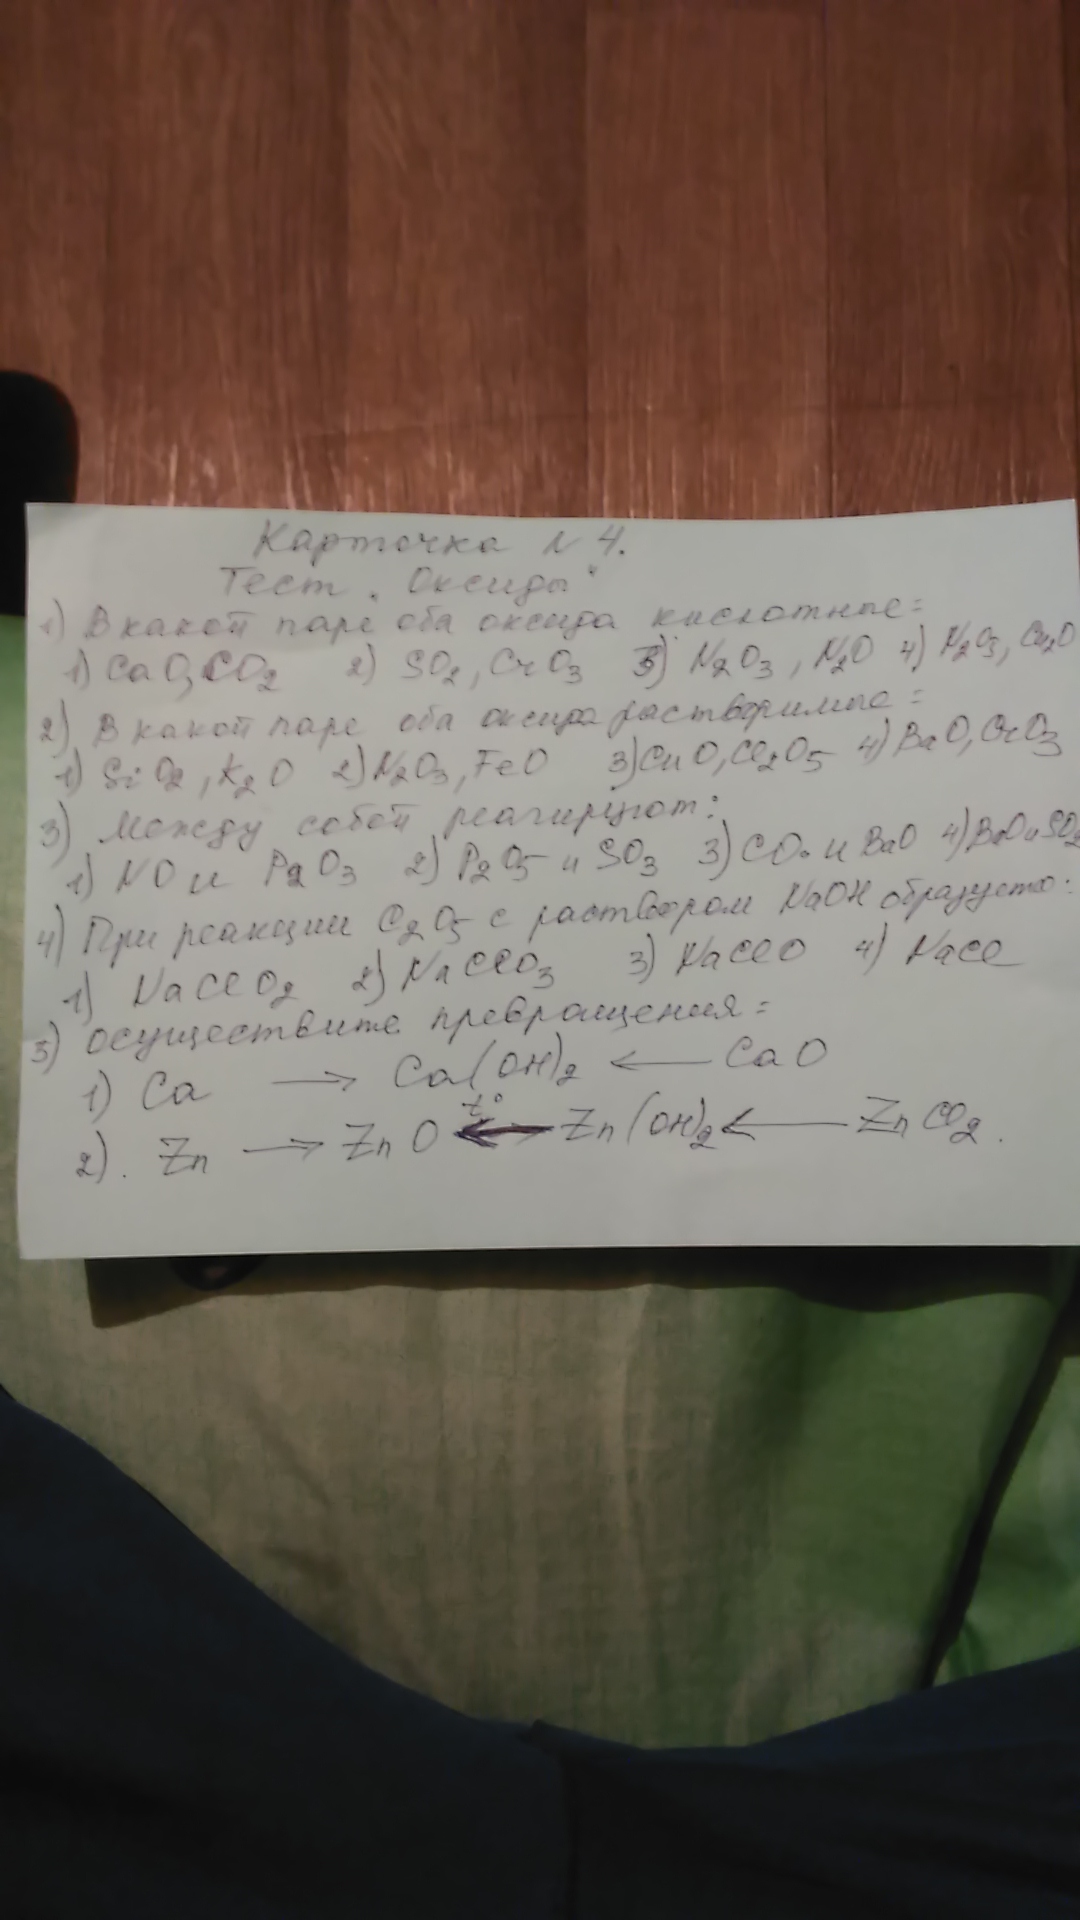 Карточка N 4.
Тест „Оксиды"
1) В какой паре оба оксида кислотные:
1) CaO, CO2 2) SO2, CrO3 3) N2O3, N2O 4) N2O3, Cu2O
2) В какой паре оба оксида растворимые:
1) SiO2, K2O 2) N2O3, FeO 3) CuO, Cl2O5 4) BaO, CrO3
3) Между собой реагируют:
1) NO и P2O3 2) P2O5 и SO3 3) CO и BaO 4) BaO и SO2
4) При реакции Cl2O5 с раствором NaOH образуется:
1) NaClO2 2) NaClO3 3) NaClO 4) NaCl
5) осуществите превращения:
1) Ca → Ca(OH)2 ← CaO
2). Zn → ZnO ←t° Zn(OH)2 ← ZnCl2.